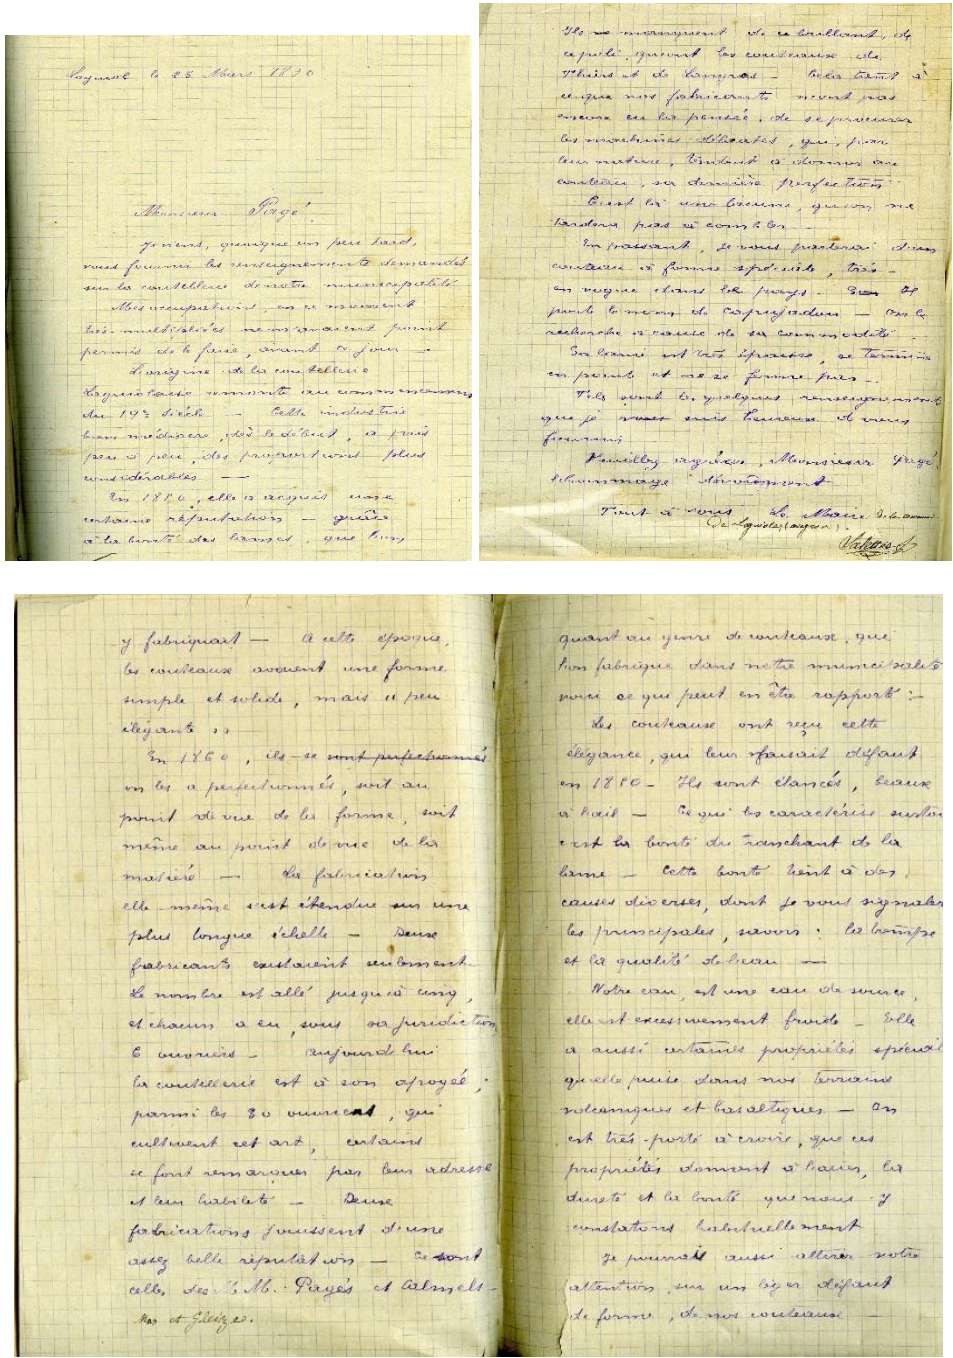 Laguiole le 23 Mars 1890
Monsieur Pagé.
Je viens, quoique un peu tard,
vous fournir les renseignements demandés
sur la coutellerie de notre municipalité
Mes occupations, en ce moment
très-multipliées ne m'avaient point
permis de le faire, avant ce jour —
L'origine de la coutellerie
Laguiolaise remonte au commencement
du 19e siècle — Cette industrie
bien médiocre, dès le début, a pris
peu à peu, des proportions plus
considérables —
En 1850, elle a acquis une
certaine réputation — grâce
à la bonté des lames, que l'on
y fabriquait — A cette époque,
les couteaux avaient une forme
simple et solide, mais peu
élégante
En 1860, ils se sont perfectionnés
on les a perfectionnés, soit au
point de vue de la forme, soit
même au point de vue de la
matière — La fabrication
elle-même s'est étendue sur une
plus longue échelle — Deux
fabricants existaient seulement.
Le nombre est allé jusqu'à cinq,
et chacun a eu, sous sa juridiction
6 ouvriers — aujourd'hui
la coutellerie est à son apogée;
parmi les 30 ouvriers, qui
cultivent cet art, certains
se font remarquer par leur adresse
et leur habileté — Deux
fabrications jouissent d'une
assez belle réputation — Ce sont
celles des M.M. Pagés et Calmels —
Mas et Glaize.
quant au genre de couteaux, que
l'on fabrique dans notre municipalité
voici ce qui peut en être rapporté :-
Les couteaux ont reçu cette
élégance, qui leur faisait défaut
en 1850 - Ils sont élancés, beaux
à l'œil — Ce qui les caractérise surtout
c'est la bonté du tranchant de la
lame — Cette bonté tient à des
causes diverses, dont je vous signaler
les principales, savoir : la trempe
et la qualité de l'eau —
Notre eau, est une eau de source,
elle est excessivement froide — Elle
a aussi certaines propriétés spécial
qu'elle puise dans nos terrains
volcaniques et basaltiques — On
est très-porté à croire, que ces
propriétés donnent à l'acier, la
dureté et la bonté que nous y
constatons habituellement
Je pourrais aussi attirer votre
attention, sur un léger défaut
de forme, de nos couteaux —
Ils manquent de ce brillant, de
ce poli, qu'ont les couteaux de
Thiers et de Langres — Cela tient à
ce que nos fabricants n'ont pas
encore eu la pensée, de se procurer
les machines délicates, qui, par
leur nature, tendent à donner au
couteau, sa dernière perfection
C'est là une lacune, qu'on ne
tardera pas à combler —
En passant, je vous parlerai d'un
couteau à forme spéciale, très-
en vogue dans le pays — Il
porte le nom de Capujadou — On le
recherche à cause de sa commodité.
Sa lame est très épaisse, se termine
en pointe et ne se ferme pas —.
Tels sont les quelques renseignements
que je suis heureux de vous
fournir.
Veuillez agréer, Monsieur Pagé
l'hommage dévouement
Tout à vous Le Maire de la commune
de Laguiole (Aveyron).